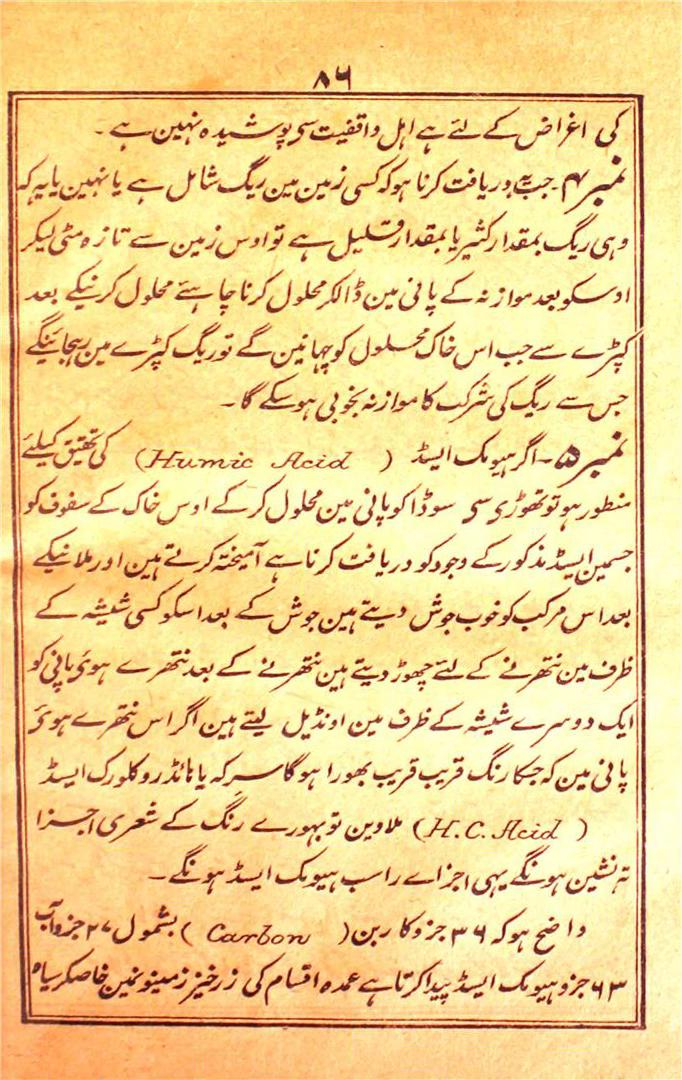 ۸۶
کی اغراض کے لئے ہے اہل واقفیت سی پوشیدہ نہین ہے۔
نمبر ۴۔ جب یہ دریافت کرنا ہو کہ کسی زمین مین ریگ شامل ہے یا نہین یا یہ کہ
وہی ریگ بمقدار کثیر یا بمقدار قلیل ہے تو اوس زمین سے تازہ مٹی لیکر
اوسکو بعد موازنہ کے پانی مین ڈالکر محلول کرنا چاہئے محلول کرنیکے بعد
کپڑے سے جب اس خاک محلول کو چہانین گے تو ریگ کپڑے مین رہجائینگے
جس سے ریگ کی شرکت کا موازنہ بخوبی ہو سکے گا۔
نمبر ۵۔ اگر ہیومک ایسڈ ( Humic Acid ) کی تحقیق کیلئے
منظور ہو تو تھوڑی سی سوڈا کو پانی مین محلول کر کے اوس خاک کے سفوف کو
جسمین ایسڈ مذکور کے وجود کو دریافت کرنا ہے آمیختہ کرتے ہین اور ملانیکے
بعد اس مرکب کو خوب جوش دیتے ہین جوش کے بعد اسکو کسی شیشہ کے
ظرف مین نتھرنے کے لئے چھوڑ دیتے ہین نتھرنے کے بعد نتھرے ہوئ پانی کو
ایک دوسرے شیشہ کے ظرف مین اونڈیل لیتے ہین اگر اس نتھرے ہوئ
پانی مین کہ جسکا رنگ قریب قریب بھورا ہو گا سرکہ یا ہائڈروکلورک ایسڈ
( H.C. Acid ) ملاوین تو بہورے رنگ کے شعری اجزا
تہ نشین ہونگے یہی اجزاے راسب ہیومک ایسڈ ہونگے۔
واضح ہو کہ ۳۶ جزو کاربن ( Carbon ) بشمول ۲۷ جزو آب
۶۳ جزو ہیومک ایسڈ پیدا کرتا ہے عمدہ اقسام کی زرخیز زمینونمین خاصکر سیاہ